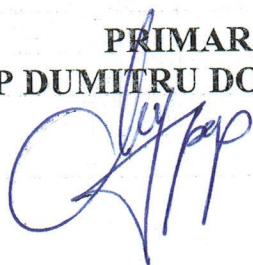 PRIMAR
P DUMITRU DO